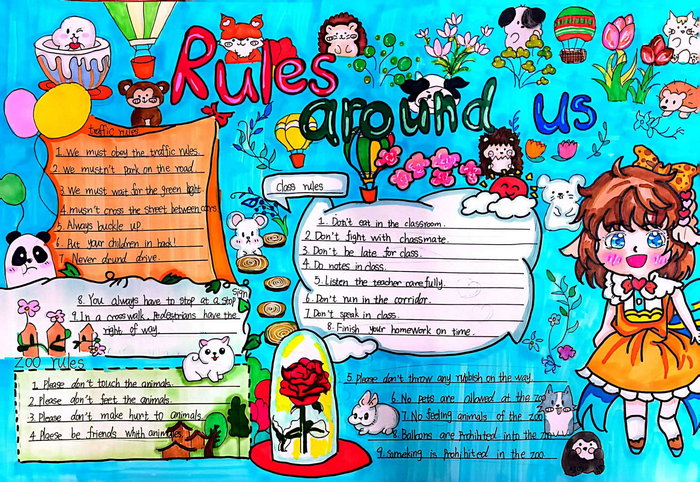 Rules
around us
Traffic rules
1. We must obey the traffic rules.
2. We mustn't park on the road.
3. We must wait for the green light
4. musn't cross the street between cars
5. Always buckle up.
6. Put your children in back!
7. Never drund drive.
8. You always have to stop at a stop
sign!
9. In a crosswalk. Pedestrians have the
right of way.
Class rules
1. Don't eat in the classroom.
2. Don't fight with chassmate.
3. Don't be late for class.
4. Do notes in class.
5. Listen the teacher carefully.
6. Don't run in the corridor.
7. Don't speak in class.
8. Finish your homework on time.
Zoo rules
1. Please don't touch the animals.
2. Please don't feet the animals.
3. Please don't make hurt to animals.
4. Plaese be friends whith animals.
5. Please don't throw any rubbish on the way.
6. No pets are allowed at the zoo
7. No feeding animals of the zoo
8. Balloons are prohibited into the zoo
9. someking is prohibited in the zoo.